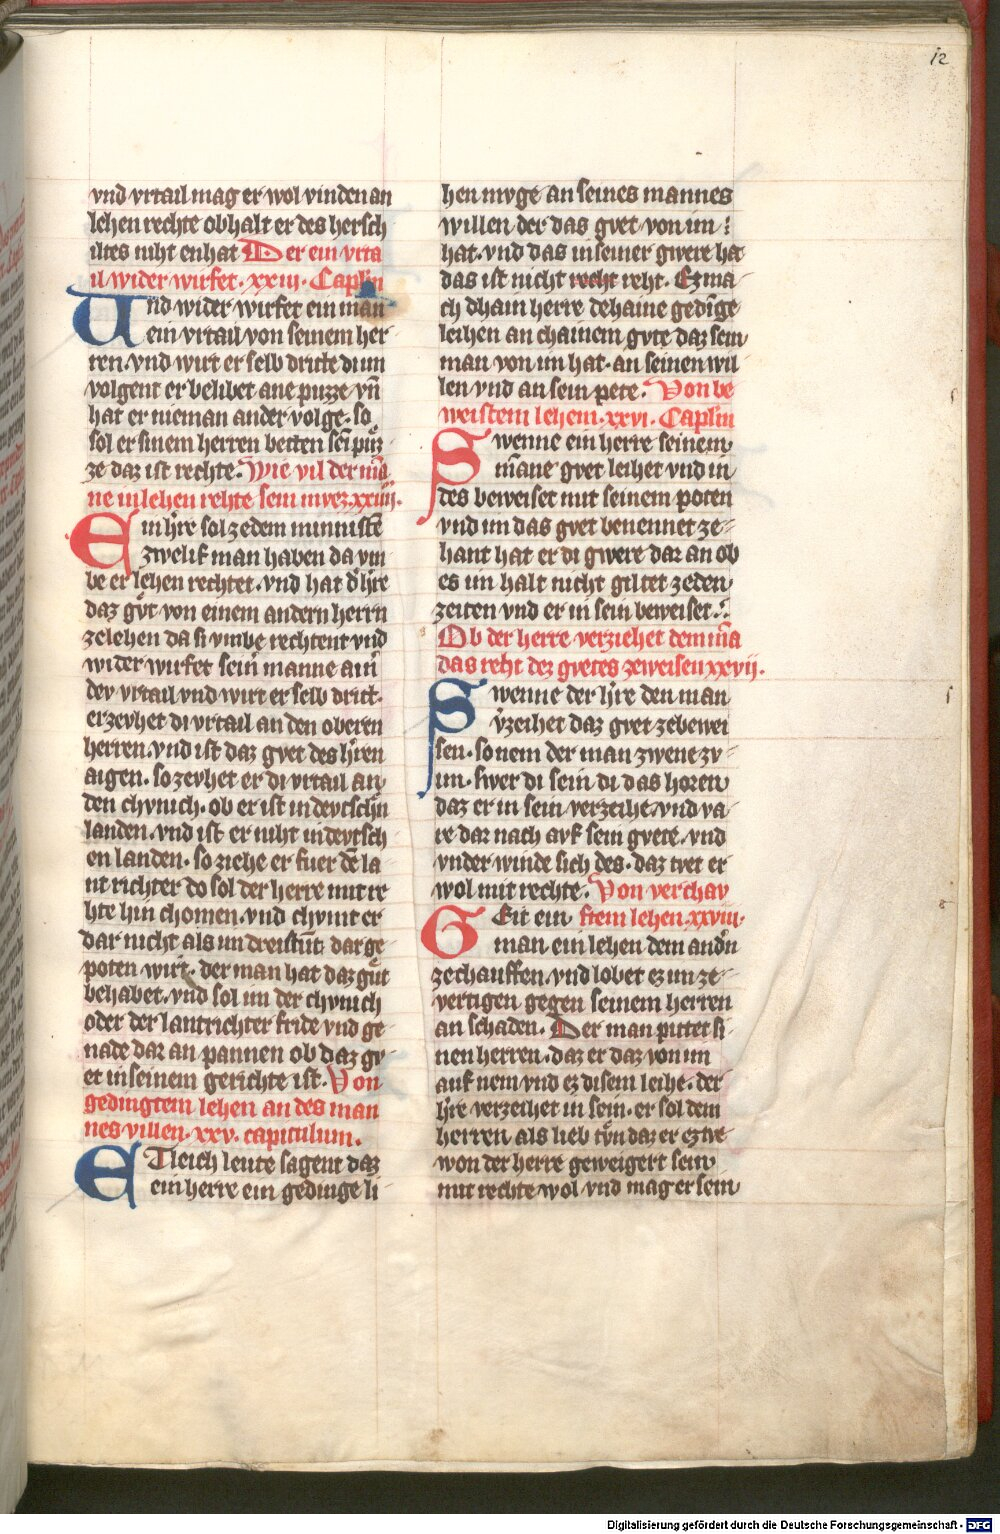 12
vnd vrtail mag er wol vinden an
lehen rechte ob halt er des hersch
iltes niht enhat Der ein vrta
il wider wirfet · xxiii · Caplm
Und wider wirfet ein man
ein vrtail von seinem her
ren · vnd wirt er selb dritte dı im
volgent er belibet ane puzze vn̄
hat er nieman ander volge · so
sol er sinem herren betten sei pu͛z
ze daz ist rechte · Wie vil der ma
ne in lehen rehte sein mvez · xxiiii ·
Ein h͛re sol ze dem minnisten
zwelif man haben da vm
be er lehen rechtet · vnd hat d͛ h͛re
daz gv̊t von einem andern herrn
zelehen da si vmbe rechtent vnd
wider wirfet sein manne ain͛
dev vrtail vnd wirt er selb dritt ·
er zevhet di vrtail an den oberen
herren · vnd ist daz gvet des h͛ren
aigen · so zevhet er di vrtail an
den chvnich · ob er ist in devtsch͛n
landen · vnd ist er niht in devtsch
en landen · so ziehe er fuer de͛ la
nt richter do sol der herre mit re
hte hin chomen · vnd chvmt er
dar nicht als im dreistūt dar ge
poten wirt · der man hat daz gv̊t
behabet · vnd sol im der chvnich
oder der lantrichter fride vnd ge
nade dar an pannen ob daz gv
et in seinem gerichte ist · Von
gedingtem lehen an des man
nes villen · xxv · capitulum ·
ETleich leute sagent daz
ein herre ein gedinge li
hen mvge an seines mannes
willen der das gvet von im
hat · vnd das in seiner gwere hat
das ist nicht recht reht · Ez ma
ch dhain herre dehaine gedi͛ge
leihen an chainem gvte daz sein
man von im hat · an seinen wil
len vnd an sein pete · Von be
weistem lehem · xxvi · Caplm
Swenne ein herre seinem
mane gvet leihet vnd in
des beweiset mit seinem poten
vnd im das gvet benennet ze
hant hat er di gwere dar an ob
es im halt nicht giltet zeden
zeiten vnd er in sein beweiset ·
Ob der herre verziehet dem ma
das reht dez gvetes zeweisen xxvij ·
Swenne der h͛re den man
v͛zeihet daz gvet zebewei
sen · so nem der man zwene zv
im · swer di sein di das horen
daz er in sein verzeihe · vnd va
re dar nach avf sein gvete · vnd
vnder winde sich des · daz tvet er
wol mit rechte · Von verchav
Geit ein ftem lehen xxviii ·
man ein lehen dem and͛n
zechauffen · vnd lobet ez im ze
vertigen gegen seinem herren
an schaden · Der man pittet si
nen herren · daz er daz von im
auf nem vnd ez disem leihe · der
h͛re verzeihet in sein · er sol dem
herren als lieb tv̊n daz er ez tve
won der herre geweigert sein
mit rechte wol vnd mag er sein
Digitalisierung gefördert durch die Deutsche Forschungsgemeinschaft - DFG